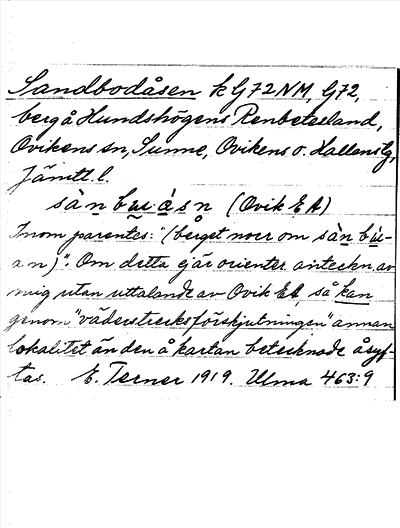 Sandbodåsen k G72NM, G72,
berg å Hundshögens Renbetesland,
Ovikens sn, Sunne, Ovikens o. Hallens tg,
Jämtl. l.
sànbuásn (Ovik EA)
Inom parentes: "(berget norr om sànbu-
an)". Om detta ej är orienter. anteckn. av
mig utan uttalande av Ovik EA, så kan
genom "väderstrecksförskjutningen" annan
lokalitet än den å kartan betecknade åsyf-
tas. E. Terner 1919. Ulma 463:9